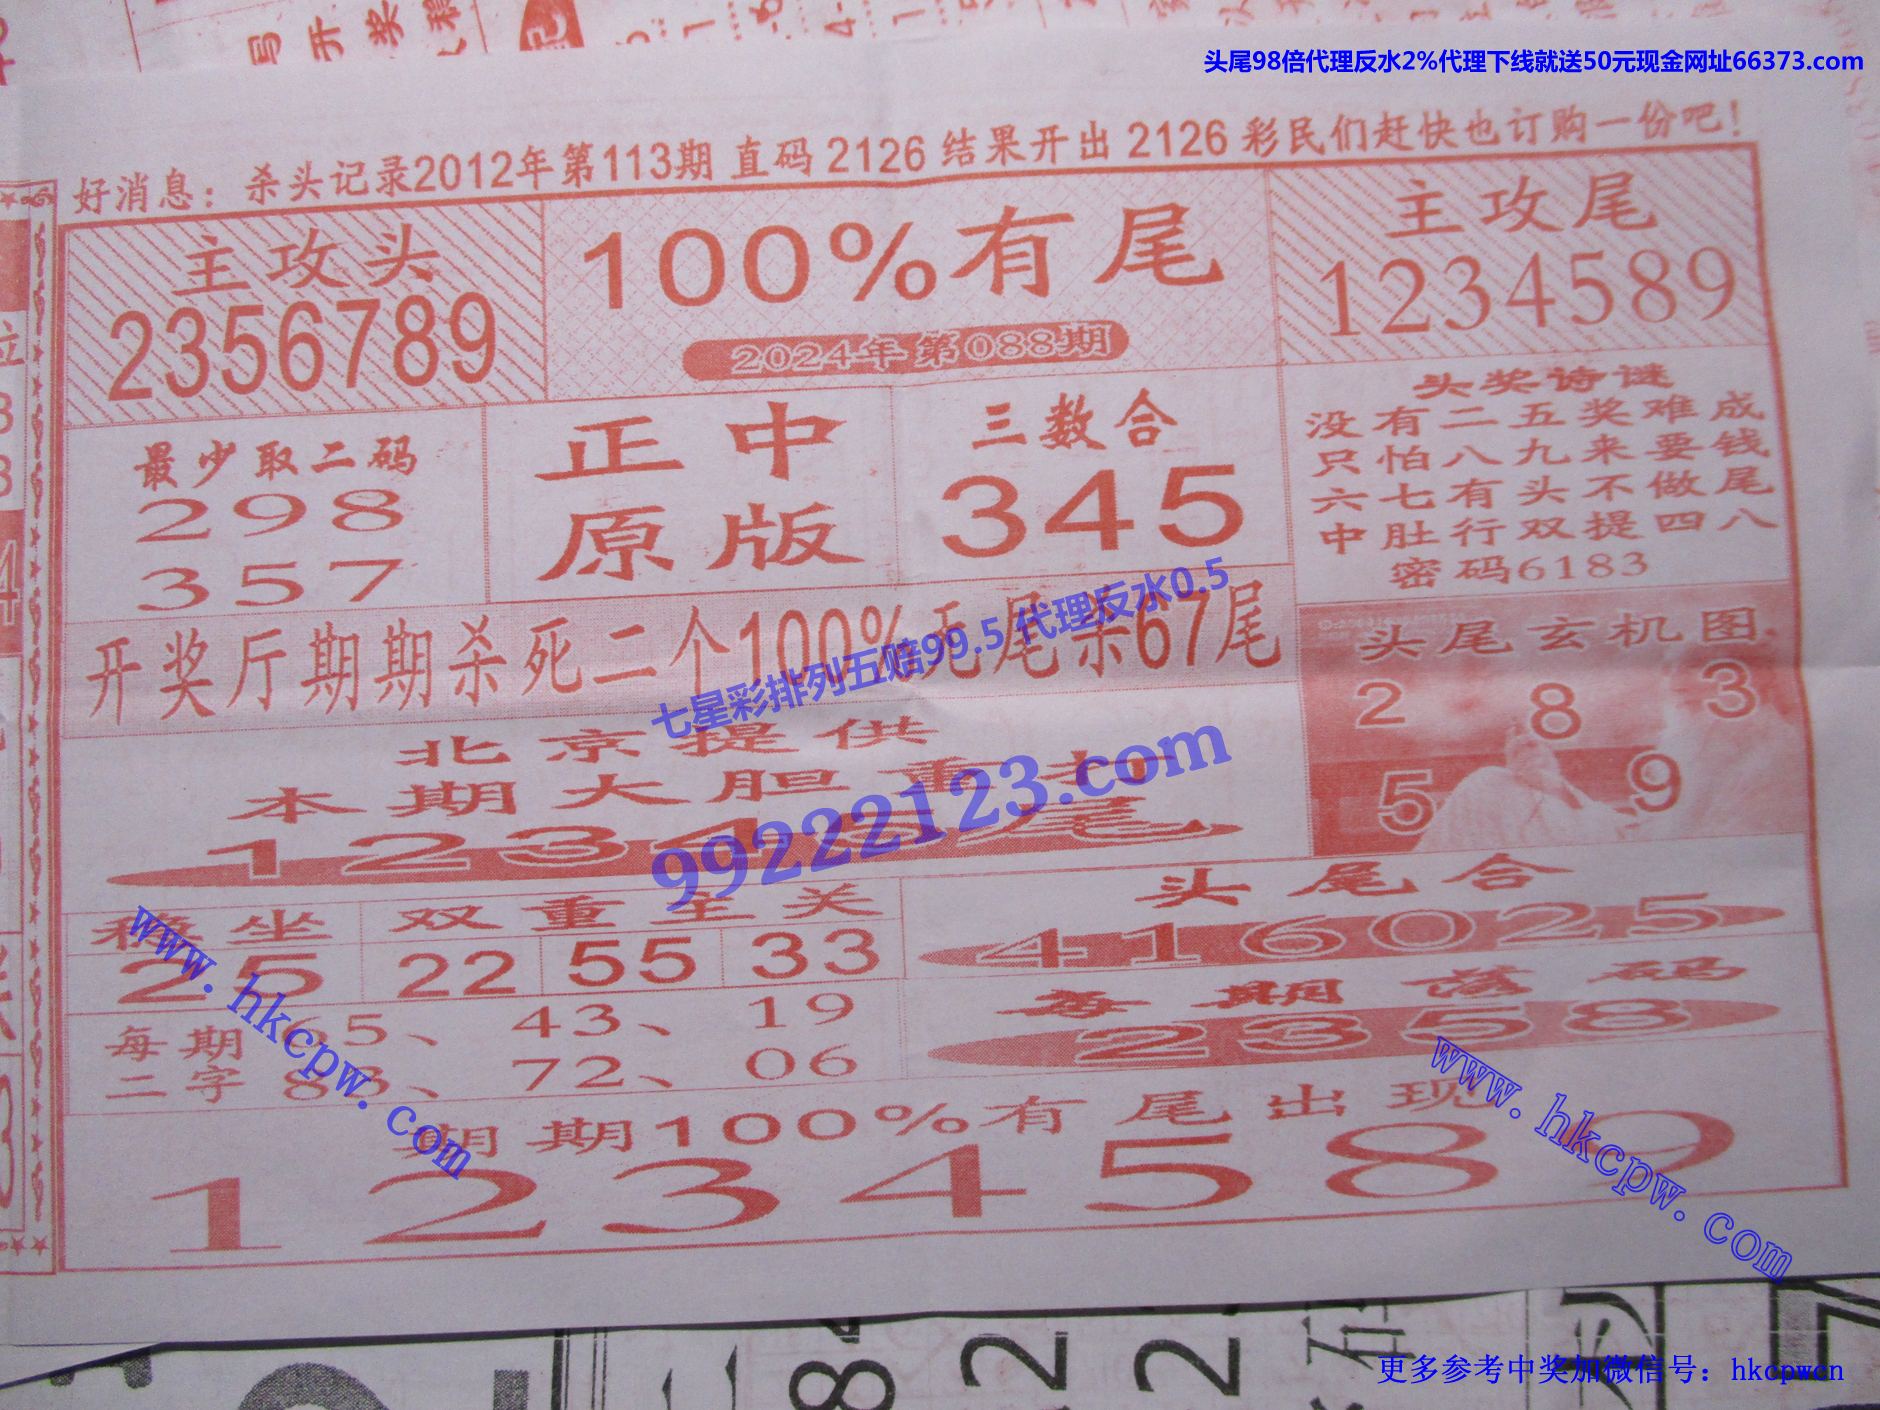 号开奖
头尾98倍代理反水2%代理下线就送50元现金网址66373.com
好消息：杀头记录2012年第113期 直码 2126 结果开出 2126 彩民们赶快也订购一份吧！
主攻头
2356789
100%有尾
2024年 第088期
主攻尾
1234589
最少取二码
298
357
正中
原版
三数合
345
头奖诗谜
没有二五奖难成
只怕八九来要钱
六七有头不做尾
中肚行双提四八
密码6183
开奖厅期期杀死二个100%无尾杀67尾
七星彩排列五赔99.5 代理反水0.5
99222123.com
头尾玄机图
2 8 3
5 9
北京提供
本期大胆重打
12345尾
稳坐
25
双重至关
22 55 33
头尾合
416025
每期
二字
65、 43、 19
83、 72、 06
每期落码
2358
www.hkcpw.com
www.hkcpw.com
期期100%有尾出现
1234589
更多参考中奖加微信号：hkcpwcn